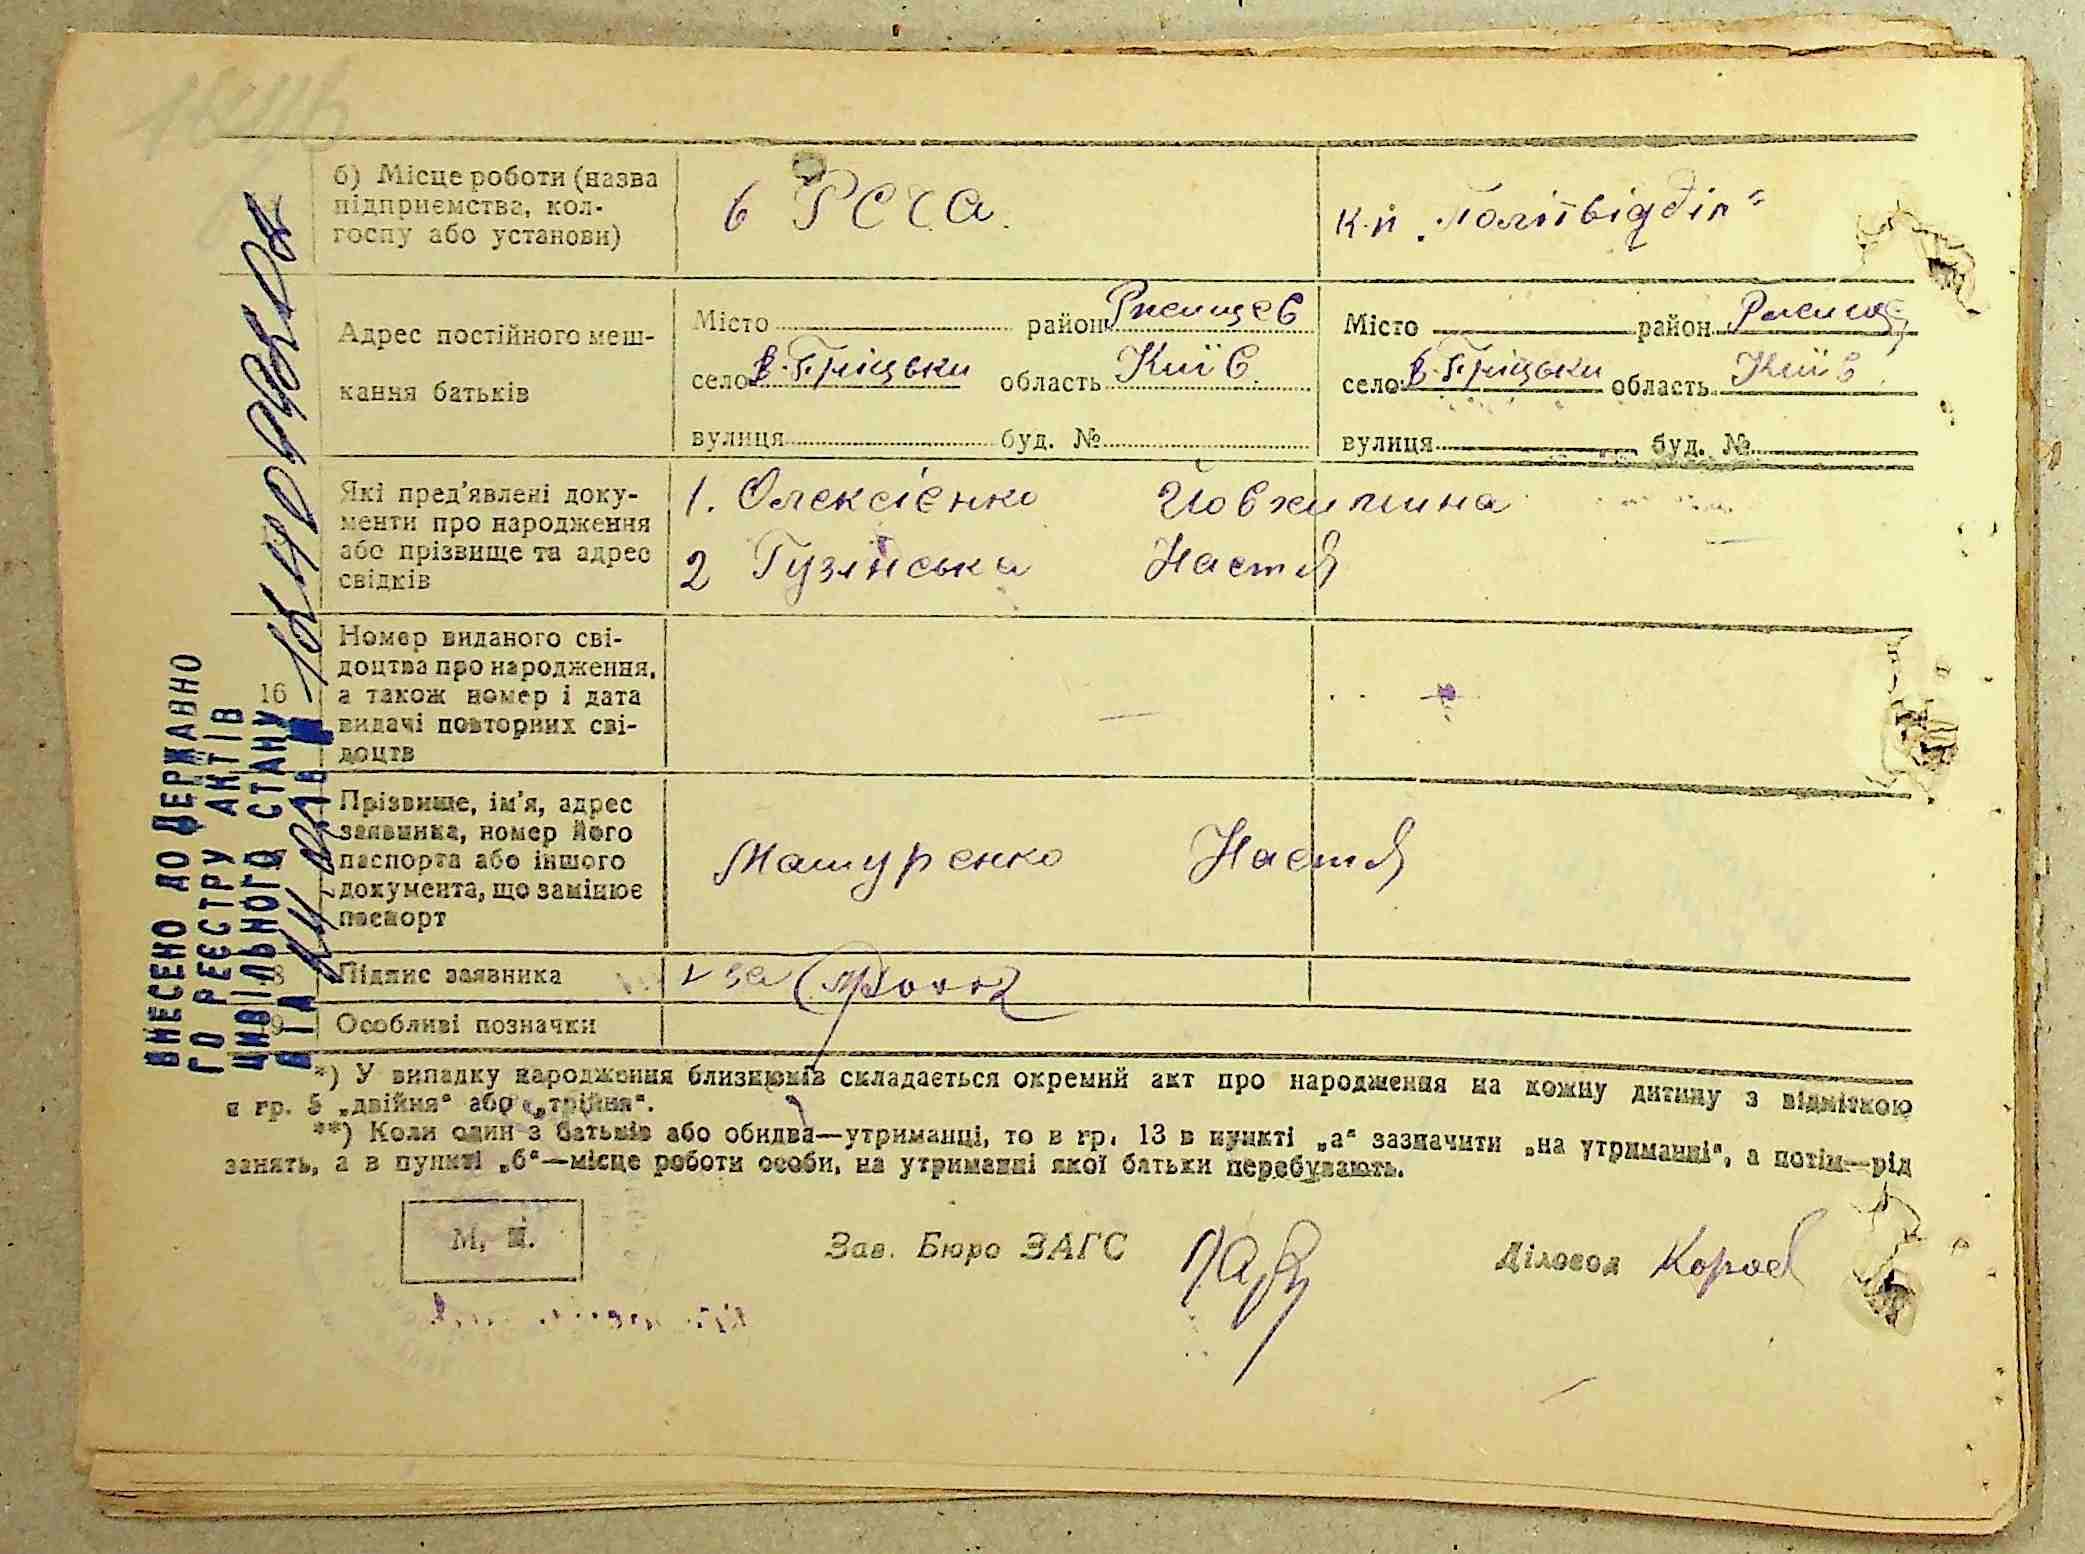 б) Місце роботи (назва
підприємства, кол-
госпу або установи)
в РСЧА.
к.п „Політвідділ"
Адрес постійного меш-
кання батьків
Місто район Ржищев
село В. Пріцьки область Київ.
вулиця буд. №
Місто район Ржищев
село В. Пріцьки область Київ
вулиця буд. №
Які пред'явлені доку-
менти про народження
або прізвище та адрес
свідків
1. Олексієнко Йовхимина
2 Гузінська Настя
16
Номер виданого сві-
доцтва про народження,
а також номер і дата
видачі повторних сві-
доцтв
Прізвище, ім'я, адрес
заявника, номер його
паспорта або іншого
документа, що замінює
паспорт
Мошуренко Настя
Підпис заявника
за
Особливі позначки
ВНЕСЕНО ДО ДЕРЖАВНО
ГО РЕЄСТРУ АКТІВ
ЦИВІЛЬНОГО СТАНУ
*) У випадку народження близнюків складається окремий акт про народження на кожну дитину з відміткою
в гр. 5 „двійня" або „трійня".
**) Коли один з батьків або обидва—утриманці, то в гр. 13 в пункті „а" зазначити „на утриманні", а потім—рід
занять, а в пункті „б"—місце роботи особи, на утриманні якої батьки перебувають.
М. П.
Зав. Бюро ЗАГС
Діловод Короб